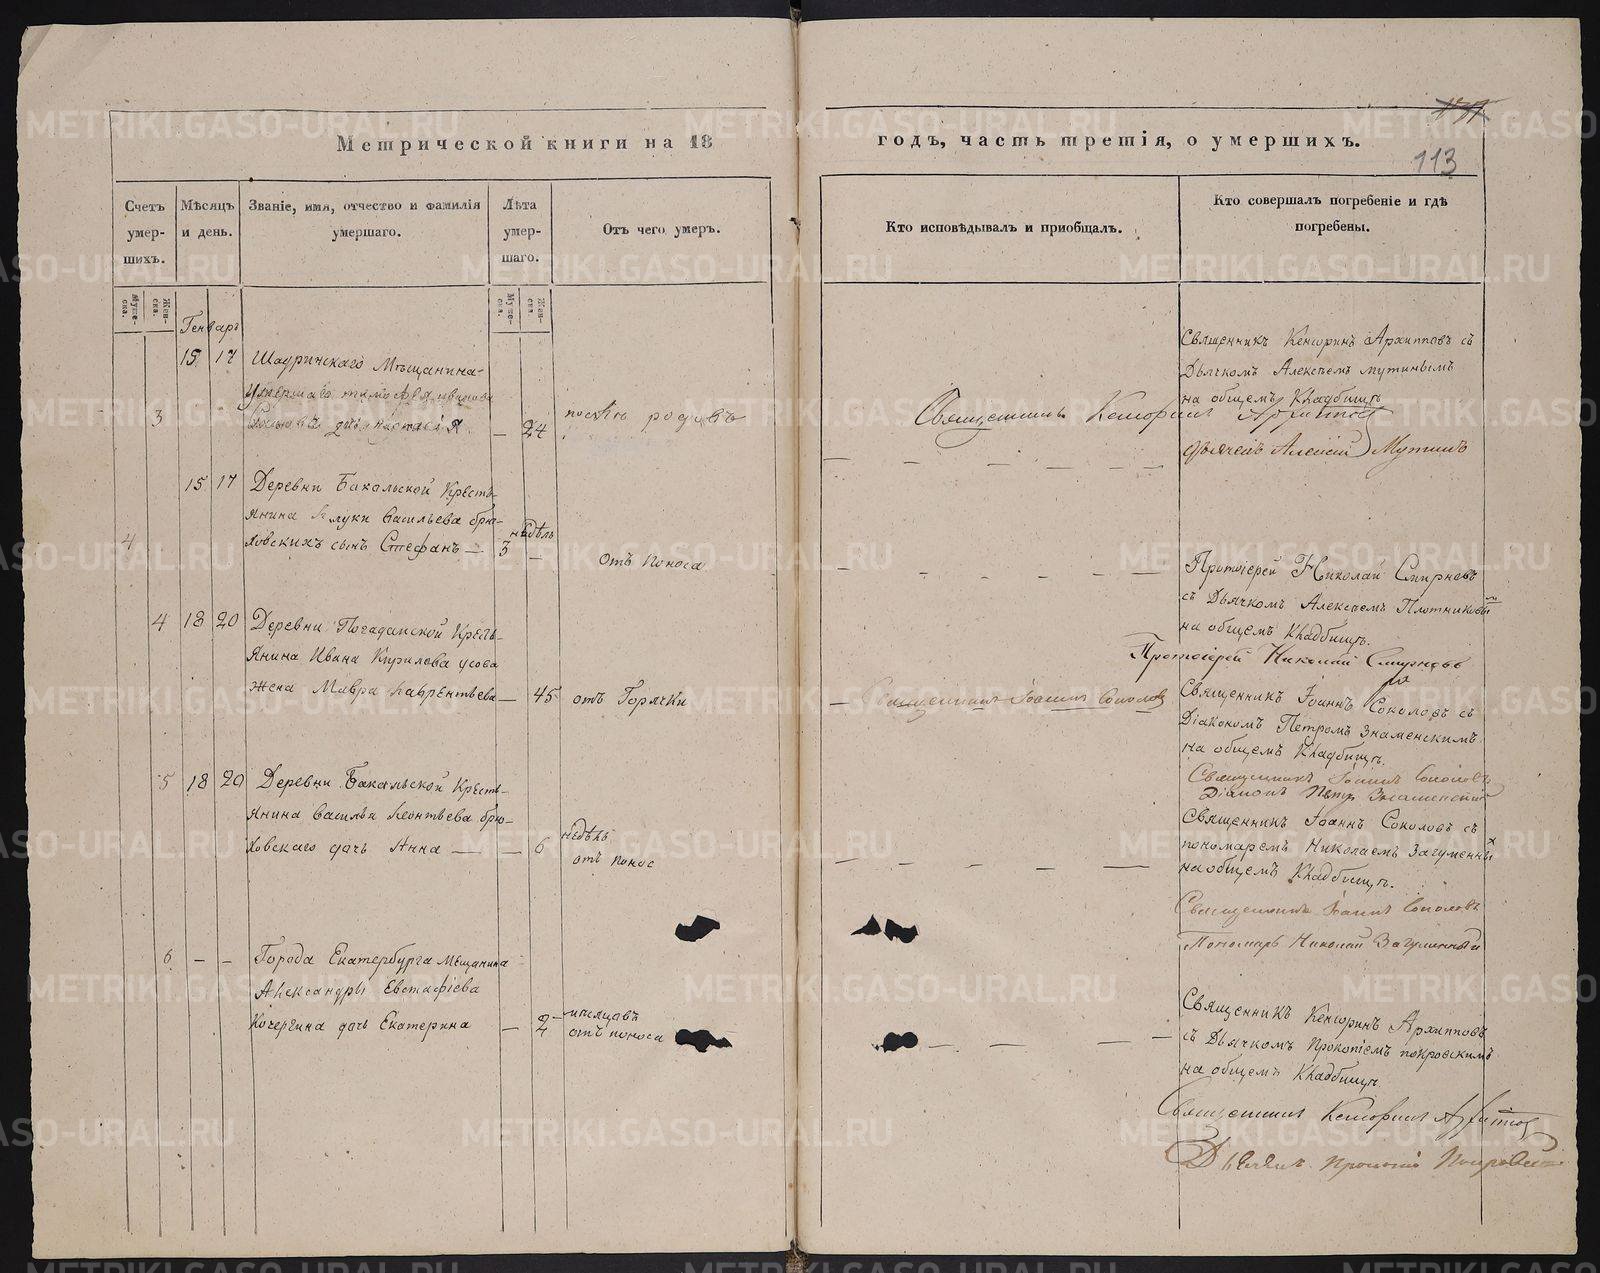 113
Метрической книги на 18
годъ, часть третія, о умершихъ.
Счетъ умер-шихъ.
Мѣсяцъ и день.
Званіе, имя, отчество и фамилія умершаго.
Лѣта умер-шаго.
Отъ чего умеръ.
Кто исповѣдывалъ и пріобщалъ.
Кто совершалъ погребеніе и гдѣ погребены.
Муже-ска.
Жен-ска.
Муже-ска.
Жен-ска.
Генварь
3 15 17 Шадринскаго Мѣщанина
умершаго
дчь — 24 послѣ родовъ
Священникъ Кенсоринъ Архипповъ
Священникъ Кенсоринъ Архипповъ съ
Дьячкомъ Алексѣемъ Мутинымъ
на общемъ Кладбищѣ
Дьячекъ Алексій Мутинъ
4 15 17 Деревни Бакальской Кресть-
янина Луки Васильева Брю-
ховскихъ сынъ Стефанъ — 3 недѣль — Отъ поноса
Протоіерей Николай Смирновъ
съ Дьячкомъ Алексѣемъ Плотниковы
мъ
на общемъ Кладбищѣ.
Протоіерей Николай Смирновъ
4 18 20 Деревни Кресть-
янина Ивана Кирилова Усова
жена Мавра Лаврентьева — 45 отъ Горячки
Священникъ Іоаннъ Соколовъ
Священникъ Іоаннъ Соколовъ съ
Діакономъ Петромъ Знаменскимъ
на общемъ Кладбищѣ.
Священникъ Іоаннъ Соколовъ
Діаконъ Петръ Знаменскій
5 18 20 Деревни Бакальской Кресть-
янина Василья Леонтьева Брю-
ховскаго дочь Анна — — 6 недѣль
отъ понос
Священникъ Іоаннъ Соколовъ съ
пономаремъ Николаемъ Загуменны
х
на общемъ Кладбищѣ.
Священникъ Іоаннъ Соколовъ
Пономарь Николай Загуменный
6 — — Города Екатербурга Мѣщанина
Александры Евстафіева
Кочергина дочь Екатерина — 2 мѣсяцовъ
отъ поноса
Священникъ Кенсоринъ Архипповъ
съ Дьячкомъ Прокопіемъ Покровскимъ
на общемъ Кладбищѣ.
Священникъ Кенсоринъ Архипповъ
Дьячекъ Прокопій Покровскій
METRIKI.GASO-URAL.RU